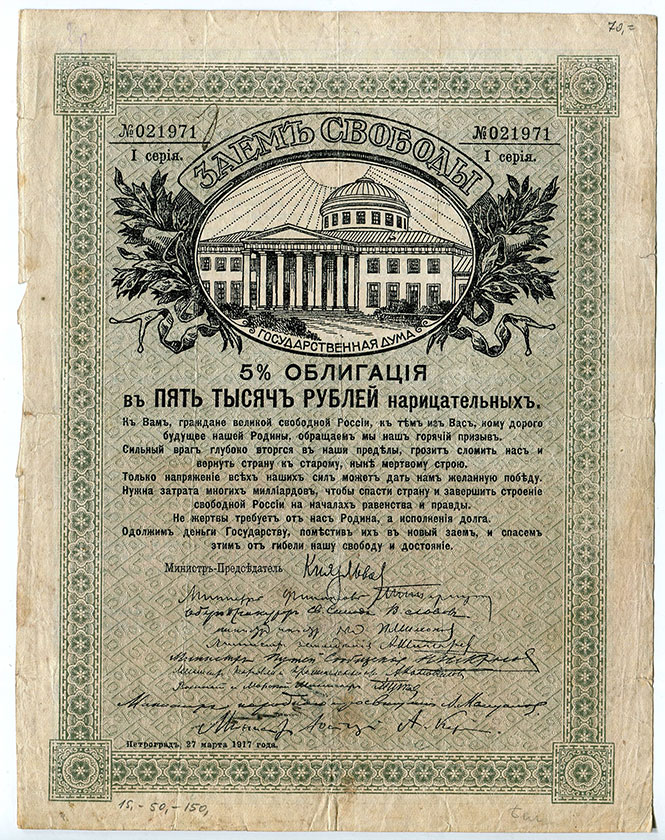 70,=
№021971
№021971
I серія.
I серія.
ЗАЕМЪ СВОБОДЫ
ГОСУДАРСТВЕННАЯ ДУМА
5% ОБЛИГАЦІЯ
въ ПЯТЬ ТЫСЯЧЪ РУБЛЕЙ нарицательныхъ.
Къ Вамъ, граждане великой свободной Россіи, къ тѣмъ изъ Васъ, кому дорого
будущее нашей Родины, обращаемъ мы нашъ горячій призывъ.
Сильный врагъ глубоко вторгся въ наши предѣлы, грозитъ сломить насъ и
вернуть страну къ старому, нынѣ мертвому строю.
Только напряженіе всѣхъ нашихъ силъ можетъ дать намъ желанную побѣду.
Нужна затрата многихъ милліардовъ, чтобы спасти страну и завершить строеніе
свободной Россіи на началахъ равенства и правды.
Не жертвы требуетъ отъ насъ Родина, а исполненія долга.
Одолжимъ деньги Государству, помѣстивъ ихъ въ новый заемъ, и спасемъ
этимъ отъ гибели нашу свободу и достояніе.
Министръ-Предсѣдатель Кн. Львовъ
Министръ Финансовъ
Оберъ-Прокуроръ Св. Синода В. Львовъ
Министръ Путей Сообщенія Н. Некрасовъ
Министръ народнаго просвѣщенія А. Мануйловъ
Министръ Юстиціи А. Кер
Петроградъ, 27 марта 1917 года.
15,-50,-150,